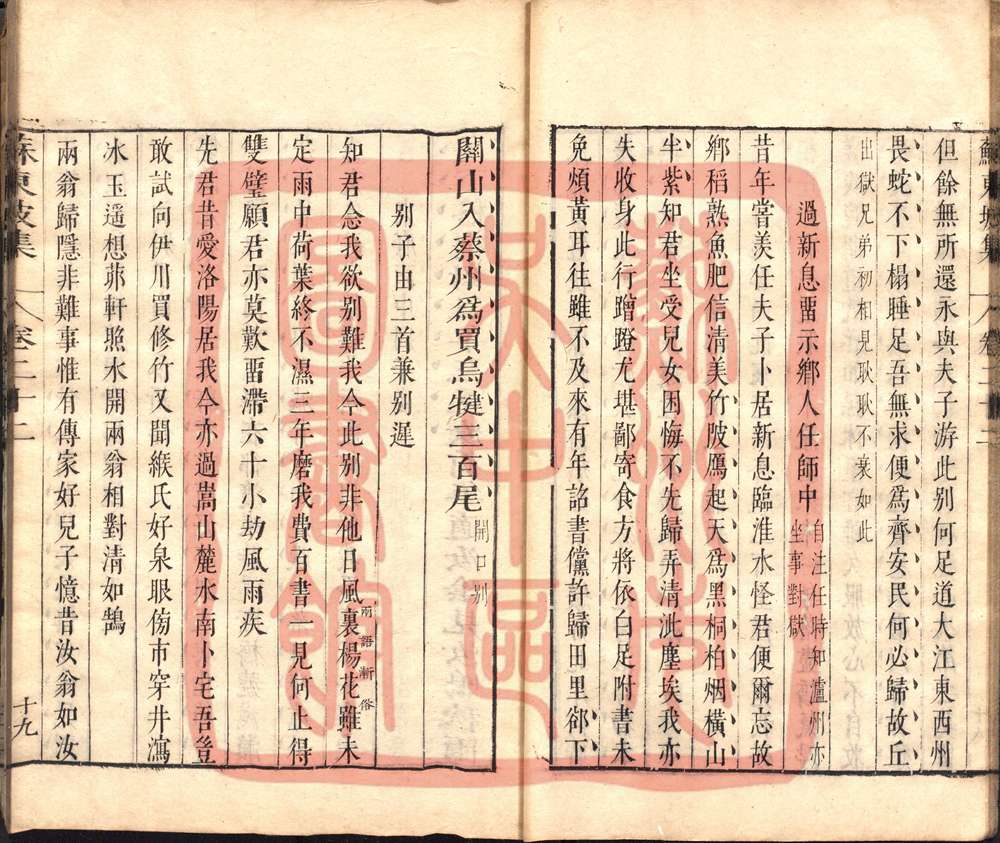 蘇東坡集 卷二十二
但餘無所還永與夫子游此别何足道大江東西州
畏蛇不下榻睡足吾無求便爲齊安民何必歸故丘
出獄兄弟初相見耿耿不衰如此
過新息畱示鄉人任師中 自注任時知瀘州亦坐事對獄
昔年嘗羨任夫子卜居新息臨淮水怪君便爾忘故
鄉稻熟魚肥信清美竹陂鴈起天爲黑桐柏烟橫山
半紫知君坐受兒女困悔不先歸弄清泚塵埃我亦
失收身此行蹭蹬尤堪鄙寄食方將依白足附書未
免煩黃耳往雖不及來有年詔書儻許歸田里郤下
關山入蔡州爲買烏犍三百尾 開口别
别子由三首兼别遲
知君念我欲别難我今此别非他日風裏楊花雖未
兩語漸俗
定雨中荷葉終不濕三年磨我費百書一見何止得
雙璧願君亦莫歎畱滯六十小劫風雨疾
先君昔愛洛陽居我今亦過嵩山麓水南卜宅吾豈
敢試向伊川買修竹又聞緱氏好泉眼傍市穿井瀉
冰玉遥想茆軒照水開兩翁相對清如鵠
兩翁歸隱非難事惟有傳家好兒子憶昔汝翁如汝
蘇東坡集 卷二十二
十九
圖書館